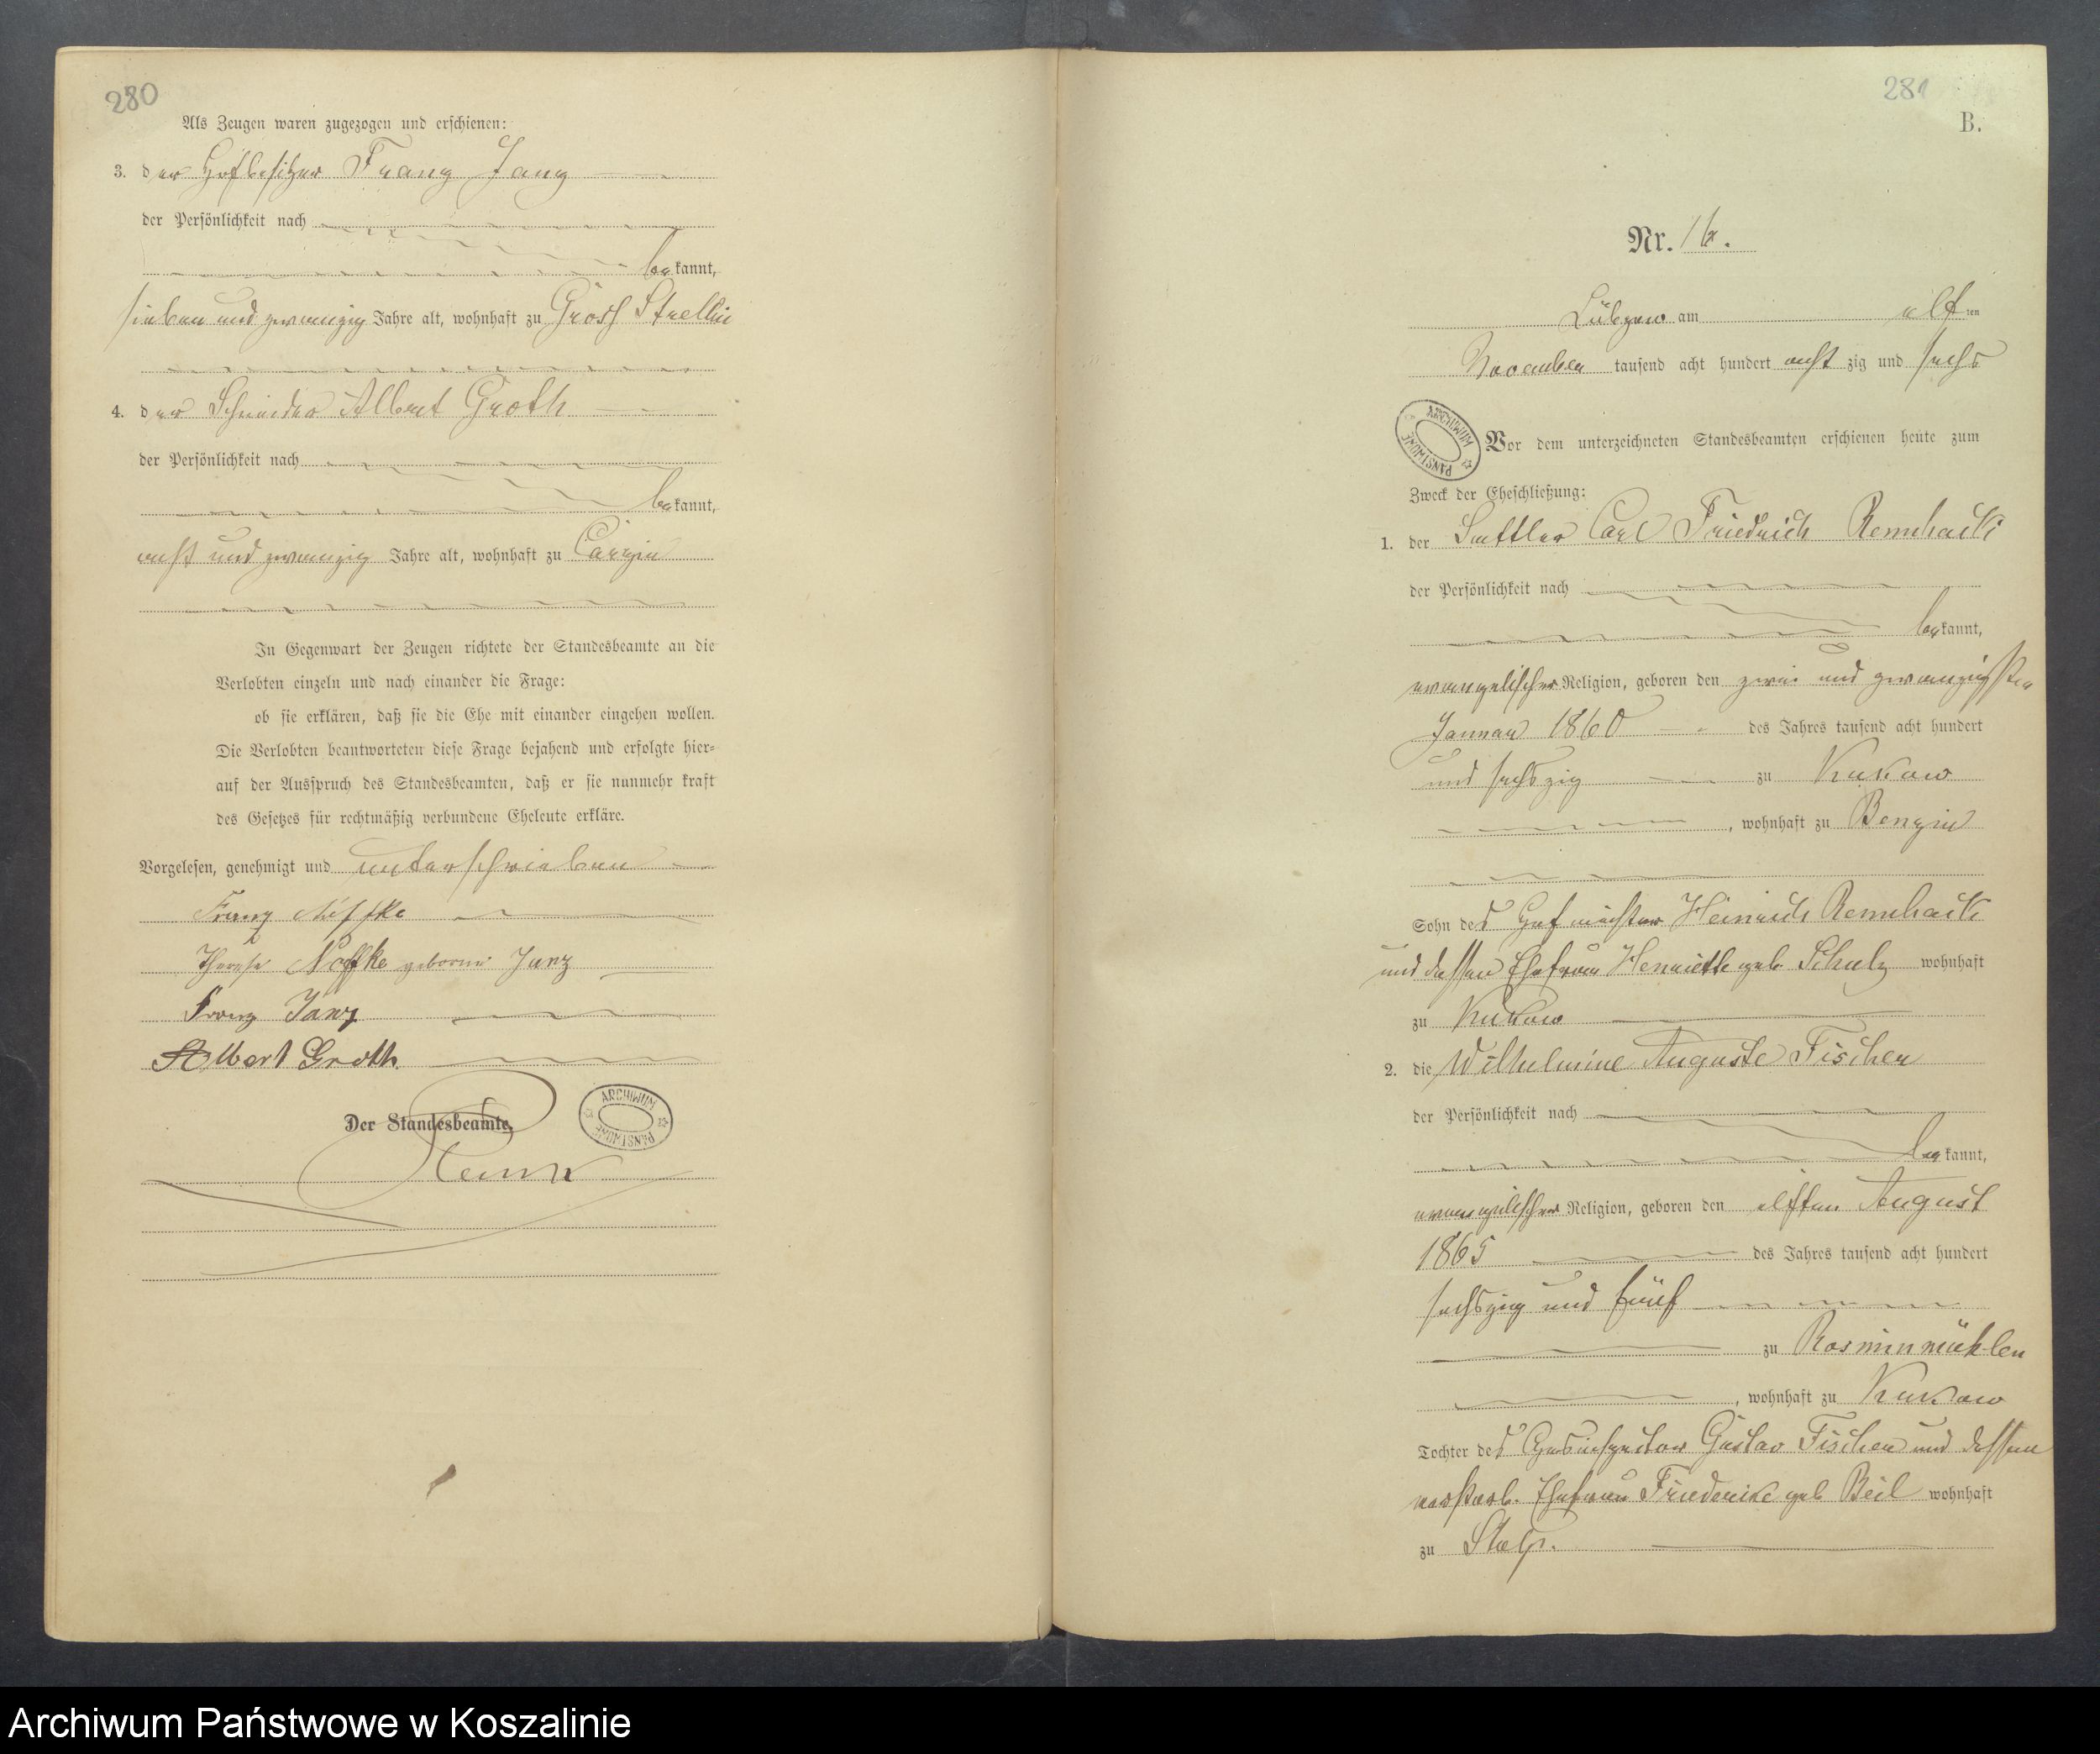 280
Als Zeugen waren zugezogen und erschienen:
3. der Hofbesitzer Franz Janz
der Persönlichkeit nach
bekannt,
sieben und zwanzig Jahre alt, wohnhaft zu Gross Strellin
4. der Schneider Albert Groth
der Persönlichkeit nach
bekannt,
acht und zwanzig Jahre alt, wohnhaft zu Carzin
In Gegenwart der Zeugen richtete der Standesbeamte an die
Verlobten einzeln und nach einander die Frage:
ob sie erklären, daß sie die Ehe mit einander eingehen wollen.
Die Verlobten beantworteten diese Frage bejahend und erfolgte hier=
auf der Ausspruch des Standesbeamten, daß er sie nunmehr kraft
des Gesetzes für rechtmäßig verbundene Eheleute erkläre.
Vorgelesen, genehmigt und unterschrieben
Franz Noffke
Therese Noffke geborene Janz
Franz Janz
Albert Groth.
Der Standesbeamte.
ARCHIWUM PAŃSTWOWE
281
B.
Nr. 16.
Lübzow am elften
November tausend acht hundert acht zig und sechs
ARCHIWUM PAŃSTWOWE
Vor dem unterzeichneten Standesbeamten erschienen heute zum
Zweck der Eheschließung:
1. der Sattler Carl Friedrich
der Persönlichkeit nach
bekannt,
evangelischer Religion, geboren den zwei und zwanzigsten
Januar 1860 des Jahres tausend acht hundert
und sechszig zu Kukow
, wohnhaft zu Benzin
Sohn des Hofmeister Heinrich
und dessen Ehefrau Henriette geb. Schulz wohnhaft
zu Kukow
2. die Wilhelmine Auguste Fischer
der Persönlichkeit nach
bekannt,
evangelischer Religion, geboren den elften August
1865 des Jahres tausend acht hundert
sechszig und fünf
zu Rosminmühlen
, wohnhaft zu Kukow
Tochter des Gustav Fischer und dessen
verstorb. Ehefrau Friedericke geb Beil wohnhaft
zu Stolp.
Archiwum Państwowe w Koszalinie